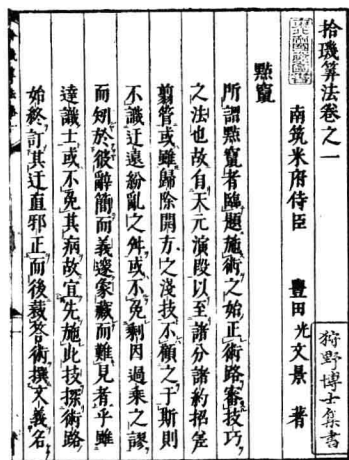 拾璣算法卷之一
南筑米府侍臣 豐田光文景 著
狩野博士集書
點竄
所謂點竄者臨題施術之始正術路審技巧
之法也故自天元演段以至諸分諸約招差
翦管或雖歸除開方之淺技不顧之于斯則
不識迂遠紛亂之舛或不免剩因過乘之謬
而矧於彼辭簡而義邃象藏而難見者乎雖
達識士或不免其病故宜先施此技探術路
始終訂其迂直邪正而後裁答術撰文義名